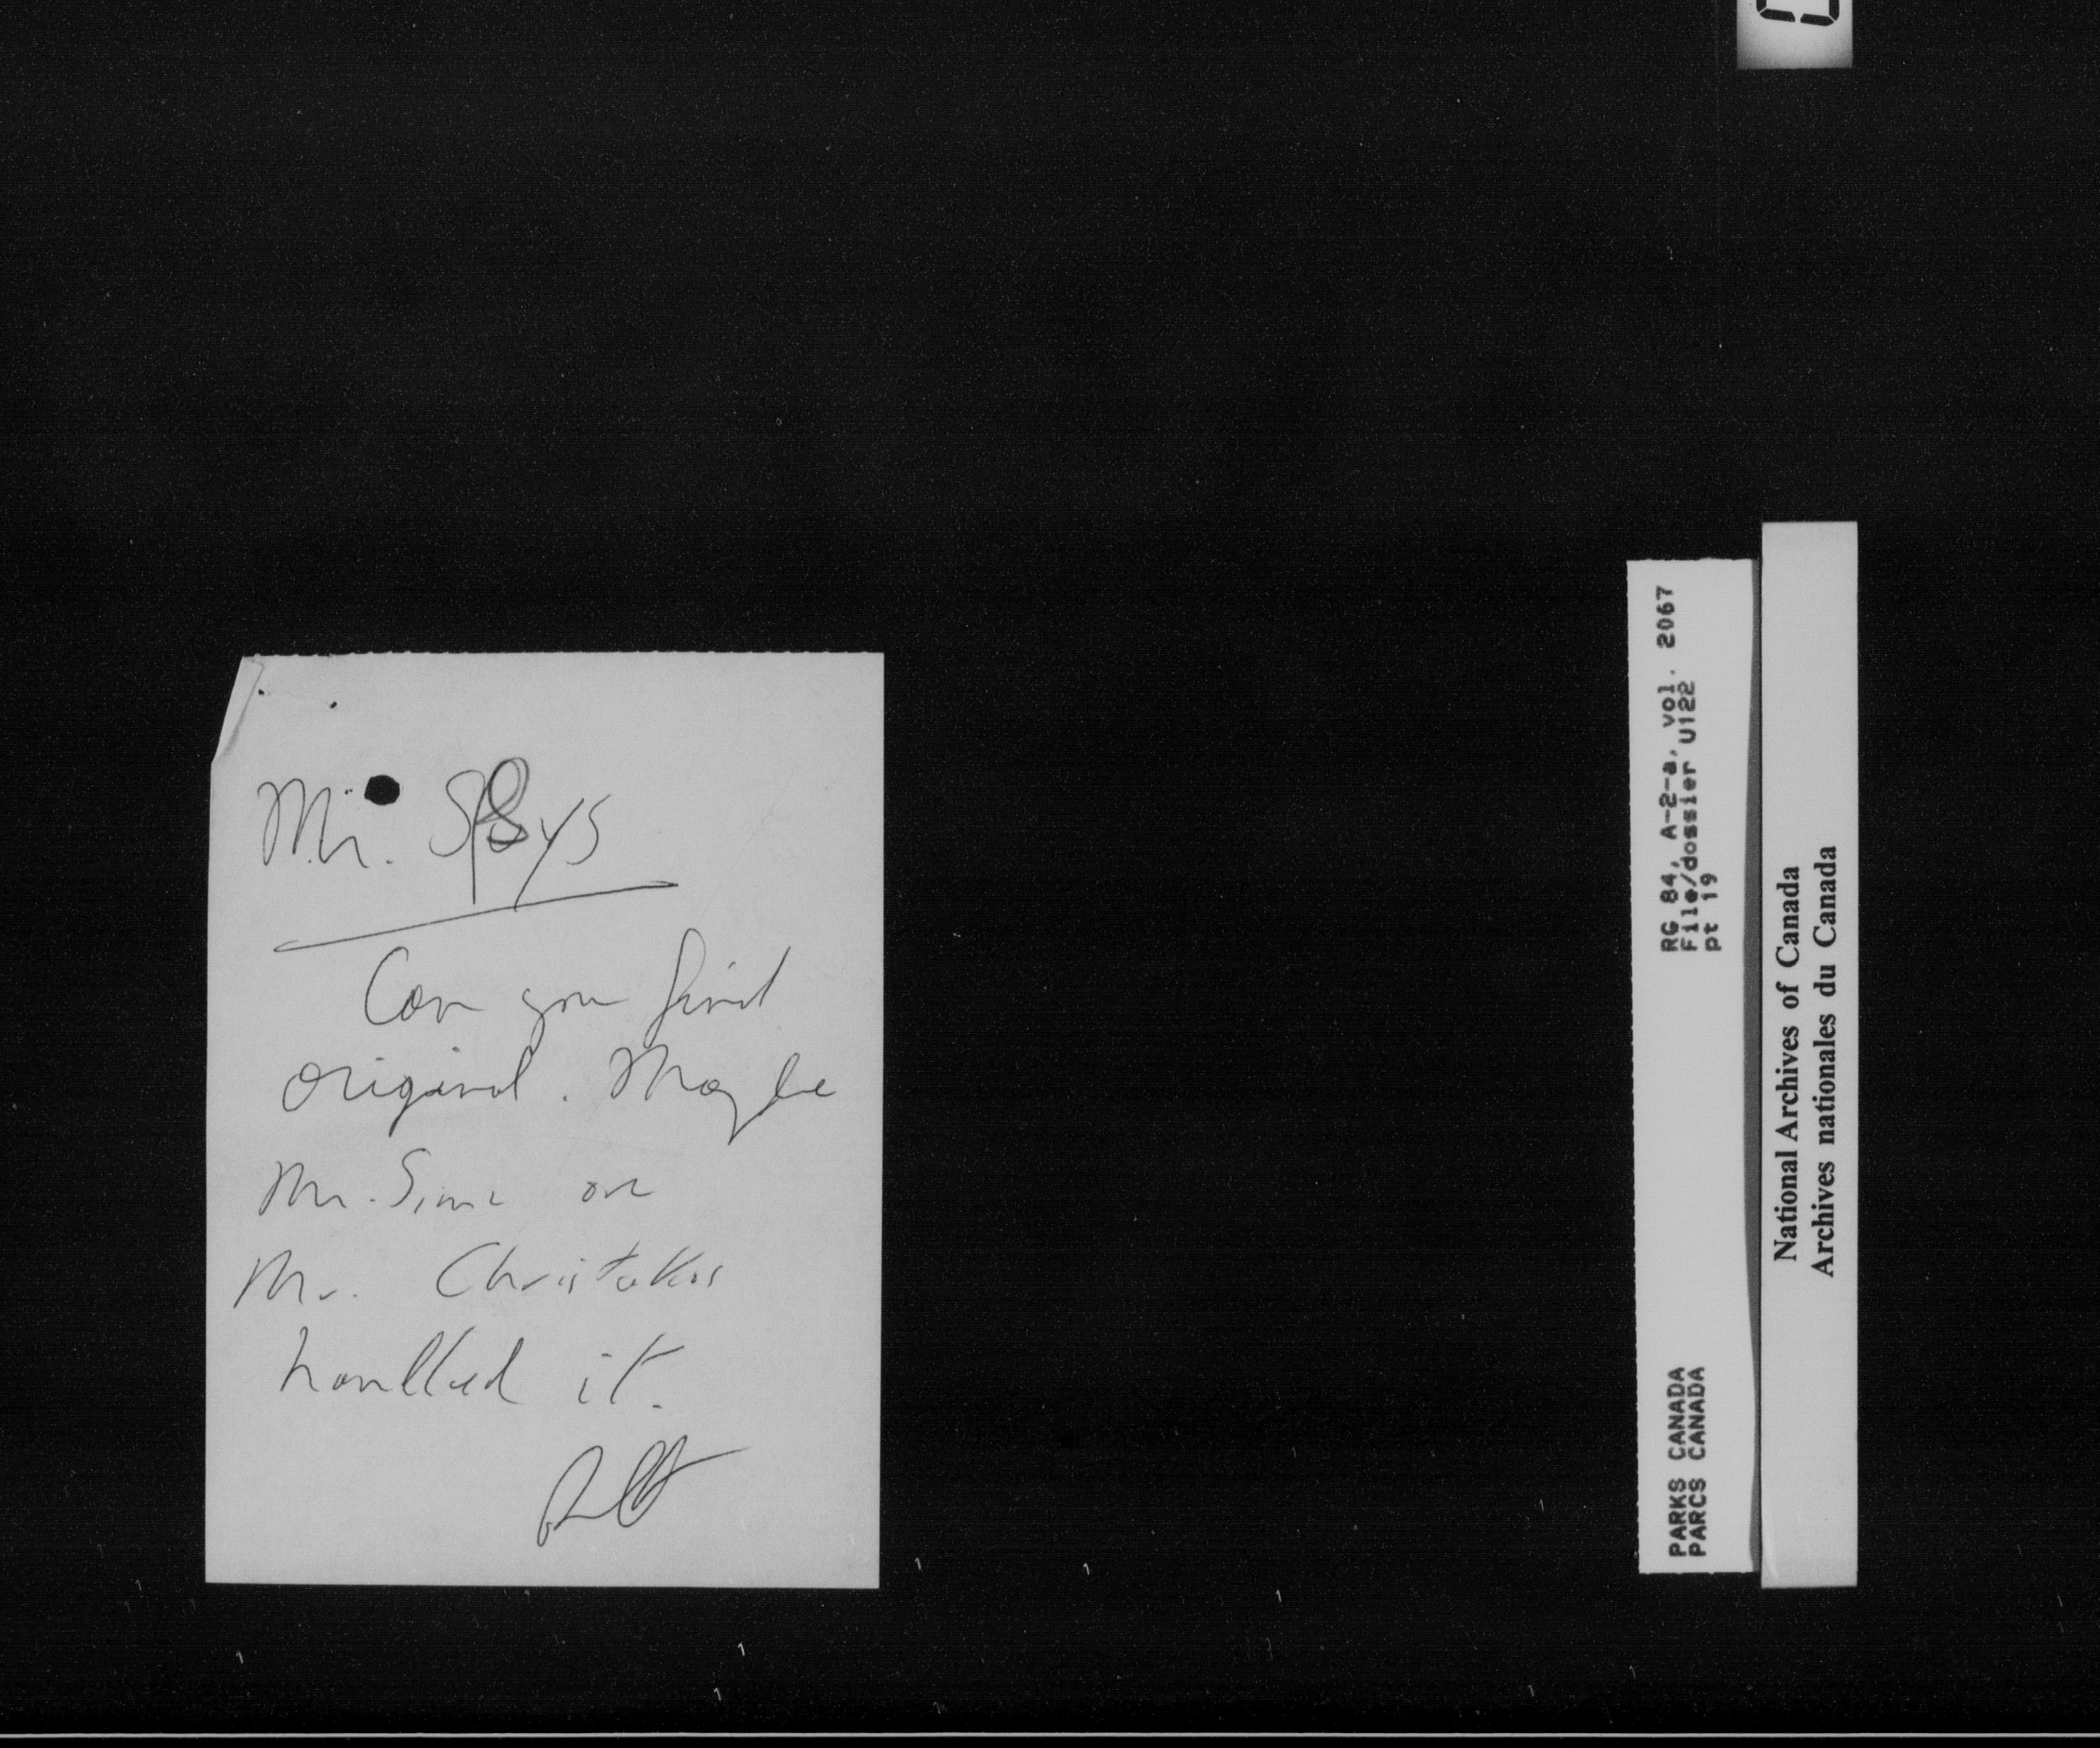 Mr. Spoys
Can you find
original. Maybe
Mr. Sime or
Mr. Christakos
handled it.
RG 84, A-2-a, vol. 2067
File/dossier U122
pt 19
PARKS CANADA
PARCS CANADA
National Archives of Canada
Archives nationales du Canada